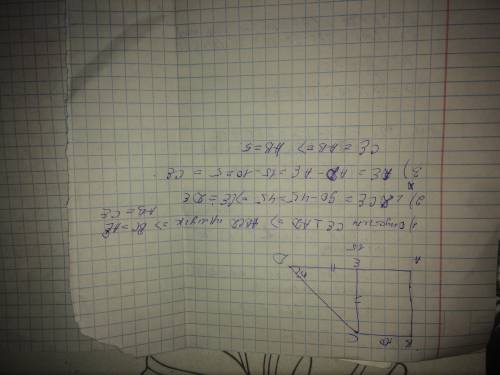 B 10 C
45°
A E D
15
1) Опустим CE ⊥ AD => ABCE - прямоуг => BC = AE
AB = CE
2) ∠ECD = 90-45=45 => CE = DE
3) DE = AD - AE = 15-10=5 = CE
CE = AB => AB=5